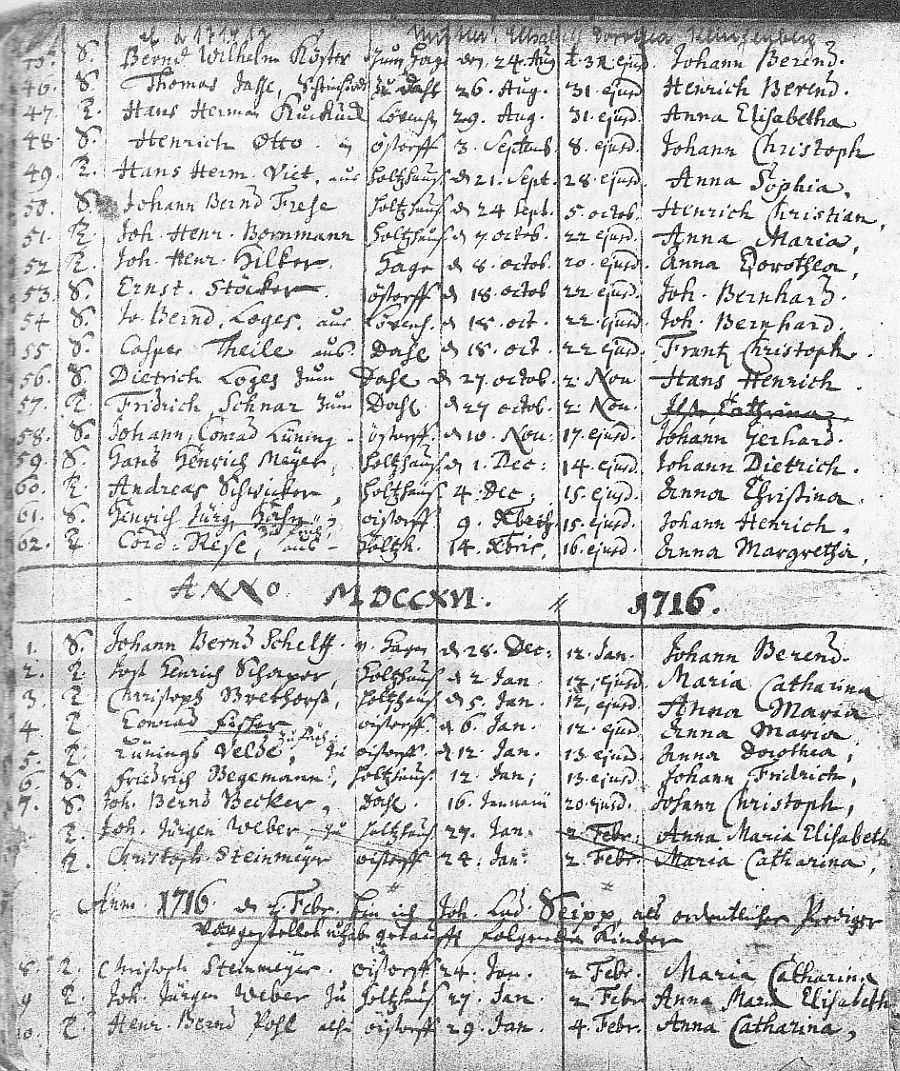 45. S. Bernd Wilhelm Köster zum Hage den 24. Aug 31 ejusd. Johann Berend.
46. S. Thomas zu Dahl 26. Aug. 31. ejusd Henrich Berend.
47. T. Hans Herman Kuckuck 29. Aug. 31. ejusd. Anna Elisabetha
48. S. Henrich Otto in östorff 3. Septemb 8. ejusd. Johann Christoph
49. T. Hans Herm. Viet. aus Holtzhaus. d 21. Sept. 28. ejusd. Anna Sophia,
50. S. Johann Bernd Frese Holtzhaus d 24 Sept. 5. octob. Henrich Christian,
51. T. Joh. Henr. Bornmann Holtzhaus d 7 octob. 22 ejusd. Anna Maria,
52 T. Joh. Henr. Hilker Hage d 8. octob 20. ejusd. Anna Dorothea,
53. S. Ernst. Stöcker östorff d 18. octob 22. ejusd. Joh. Bernhard.
54 S. Jo. Bernd. Loges. aus d 18. oct. 22. ejusd. Joh. Bernhard.
55 S. Casper Theile aus Dahl d 18. oct. 22 ejusd. Frantz Christoph
56. S. Dietrich Loges zum Dahl d 27. octob. 2. Nov Hans Henrich.
57. T Fridrich Schnar zum Dahl. d 27 octob. 2. Nov. Cathrina
58. S. Johann Conrad Lüning östorff. d 10. Nov: 17. ejusd. Johann Gerhard.
59. S. Hans Henrich Meyer, Holtzhaus d 1. Dec: 14. ejusd. Johann Dietrich.
60. T. Andreas Schwicker, Holtzhaus 4. Dec; 15. ejusd. Anna Christina
61. S. Henrich Jürg Hahn oistorff 9. Xbris 15. ejusd. Johann Henrich.
62. T Cord Rese, aus Holtzh. 14. Xbris, 16. ejusd. Anna Margretha,
ANNO MDCCXVI. 1716.
1. S. Johann Bernd Schelff. d 28. Dec: 12. Jan. Johann Berend.
2. T. Jost Henrich Scharper, Holtzhaus d 2 Jan 12. ejusd. Maria Catharina
3 T Christoph Brethorst, Holtzhaus d 5. Jan. 12, ejusd. Anna Maria
4. T Conrad Fischer oistorff. d 6. Jan. 12. ejusd Anna Maria,
5. T. Lünings Velde, zu oistorff. d 12. Jan. 13. ejusd. Anna Dorothea,
6 S. Friedrich Begemann, Holtzhaus 12. Jan; 13. ejusd. Johann Fridrich,
7. S. Joh. Bernd Becker, Dahl. 16. Januarii 20. ejusd. Johann Christoph,
T. Joh. Jürgen Weber zu Holtzhaus 27. Jan. 2. Febr. Anna Maria Elisabeth
T. Christoph Steinmeyer oistorff 24. Jan. 2. Febr. Maria Catharina,
Anno 1716 d 2 Febr. bin ich Joh. Lud. Seipp, als ordentlicher Prediger
Vorgestellet u. hab getaufft folgende Kinder
8. T. Christoph Steinmeyer. oistorff 24. Jan. 2 Febr. Maria Catharina
9 T. Joh. Jürgen Weber zu Holtzhaus 27. Jan. 2 Febr Anna Maria Elisabeth
10. T Henr. Bernd Pohl östorff 29. Jan. 4. Febr. Anna Catharina,